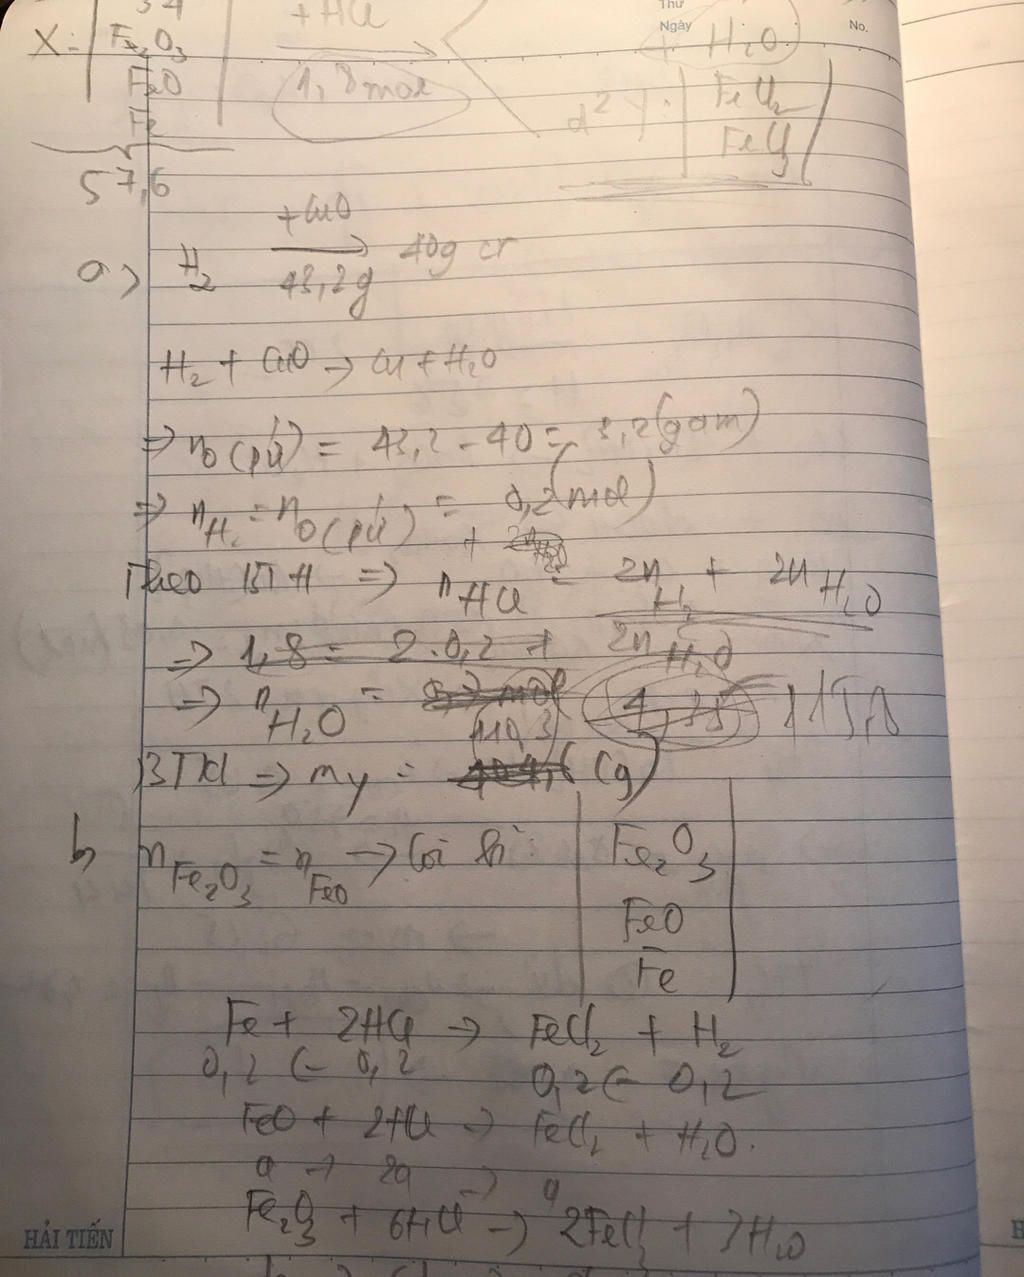 Thứ
Ngày
No.
3 4
+ HCl
X: Fe2O3
+ H2O
FeO
1,8 mol
FeCl2
Fe
d² Y:
FeCl3
57,6
+CuO
a) H2 → 40g cr
43,2g
H2 + CuO → Cu + H2O
⇒ nO(pứ) = 43,2 - 40 = 3,2 (gam)
⇒ nH2 = nO(pứ) = 0,2 (mol)
+
Theo BT H ⇒ nHCl = 2nH2 + 2nH2O
⇒ 1,8 = 2.0,2 + 2nH2O
⇒ nH2O =
110,3
BTKl ⇒ mY = (g)
b, nFe2O3 = nFeO → Coi hh: Fe2O3
FeO
Fe
Fe + 2HCl → FeCl2 + H2
0,2 ← 0,2 0,2 ← 0,2
FeO + 2HCl → FeCl2 + H2O.
a → 2a → a
Fe2O3 + 6HCl → 2FeCl3 + 3H2O
HẢI TIẾN
H